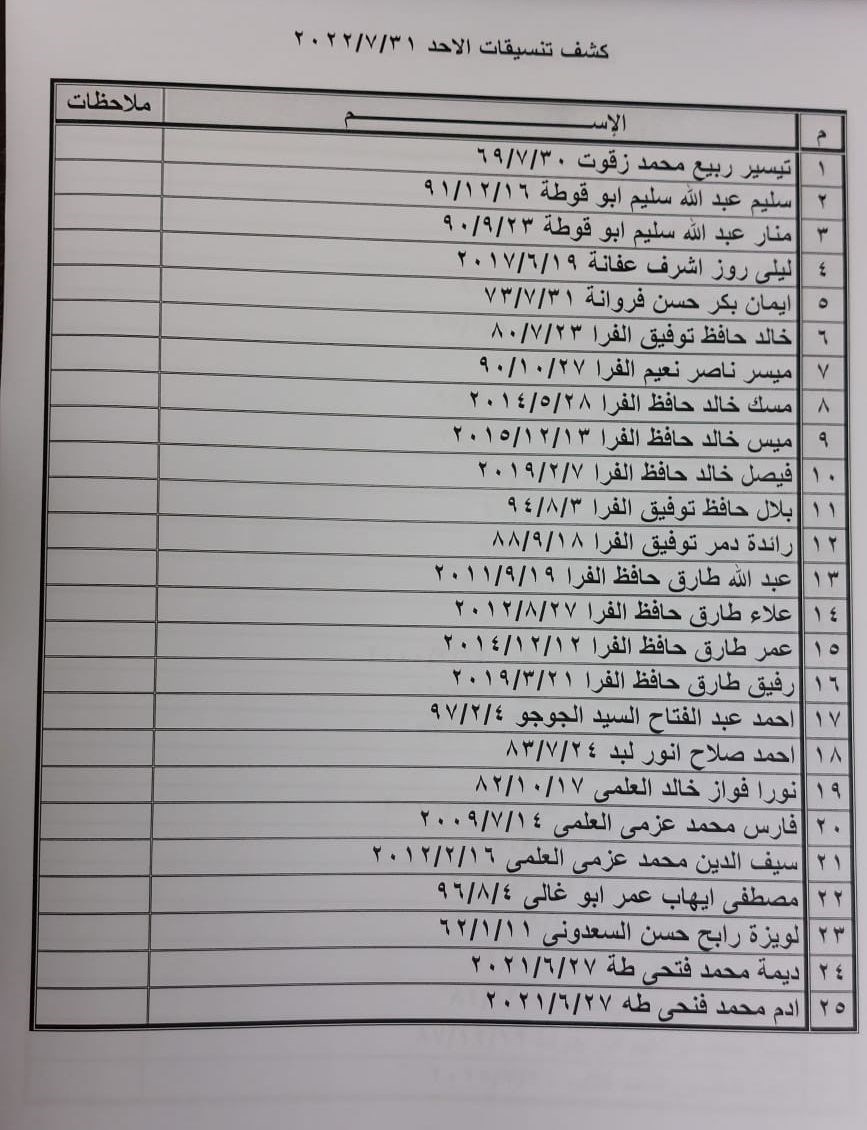 كشف تنسيقات الاحد ٢٠٢٢/٧/٣١
م الإســـــــــــــــم ملاحظات
١ تيسير ربيع محمد زقوت ٦٩/٧/٣٠
٢ سليم عبد الله سليم ابو قوطة ٩١/١٢/١٦
٣ منار عبد الله سليم ابو قوطة ٩٠/٩/٢٣
٤ ليلى روز اشرف عفانة ٢٠١٧/٦/١٩
٥ ايمان بكر حسن فروانة ٧٣/٧/٣١
٦ خالد حافظ توفيق الفرا ٨٠/٧/٢٣
٧ ميسر ناصر نعيم الفرا ٩٠/١٠/٢٧
٨ مسك خالد حافظ الفرا ٢٠١٤/٥/٢٨
٩ ميس خالد حافظ الفرا ٢٠١٥/١٢/١٣
١٠ فيصل خالد حافظ الفرا ٢٠١٩/٢/٧
١١ بلال حافظ توفيق الفرا ٩٤/٨/٣
١٢ رائدة دمر توفيق الفرا ٨٨/٩/١٨
١٣ عبد الله طارق حافظ الفرا ٢٠١١/٩/١٩
١٤ علاء طارق حافظ الفرا ٢٠١٢/٨/٢٧
١٥ عمر طارق حافظ الفرا ٢٠١٤/١٢/١٢
١٦ رفيق طارق حافظ الفرا ٢٠١٩/٣/٢١
١٧ احمد عبد الفتاح السيد الجوجو ٩٧/٢/٤
١٨ احمد صلاح انور لبد ٨٣/٧/٢٤
١٩ نورا فواز خالد العلمى ٨٢/١٠/١٧
٢٠ فارس محمد عزمى العلمى ٢٠٠٩/٧/١٤
٢١ سيف الدين محمد عزمى العلمى ٢٠١٢/٢/١٦
٢٢ مصطفى ايهاب عمر ابو غالى ٩٦/٨/٤
٢٣ لويزة رابح حسن السعدونى ٦٢/١/١١
٢٤ ديمة محمد فتحى طة ٢٠٢١/٦/٢٧
٢٥ ادم محمد فتحى طه ٢٠٢١/٦/٢٧